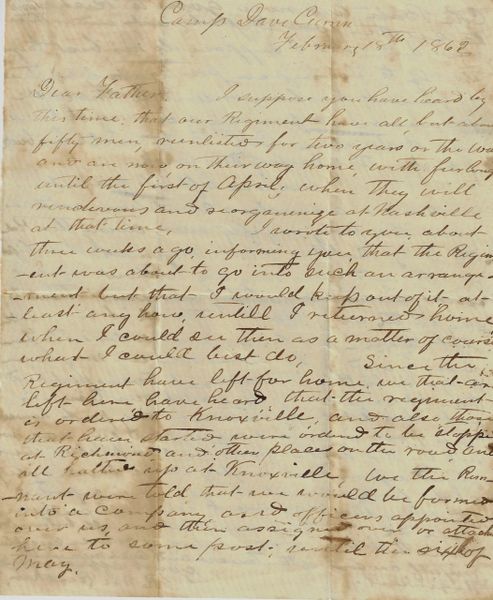 Camp Dave Currin
February 18th 1862
Dear Father. I suppose you have heard by
this time, that our Regiment have all but about
fifty men, reinlisted for two years or the war
and are now on their way home, with furlough
until the first of April, when they will
rendevous and reorganize at Nashville
at that time, I wrote to you about
three weeks ago, informing you, that the Regim-
-ent was about to go into such an arrange-
-ment but that I would keep out of it at-
-least any how, untill I returned home
when I could see then as a matter of course
what I could best do, Since the
Regiment have left for home, we that are
left here have heard that the regiment
is ordered to Knoxville, and also those
that have started were ordered to be stopped
at Richmond and other places on the road and
all halted up at Knoxville, we the Rem-
-nant were told that we would be formed
into a company and officers appointed
over us, and then assigned over or attach
here to some post; until the six of
May.